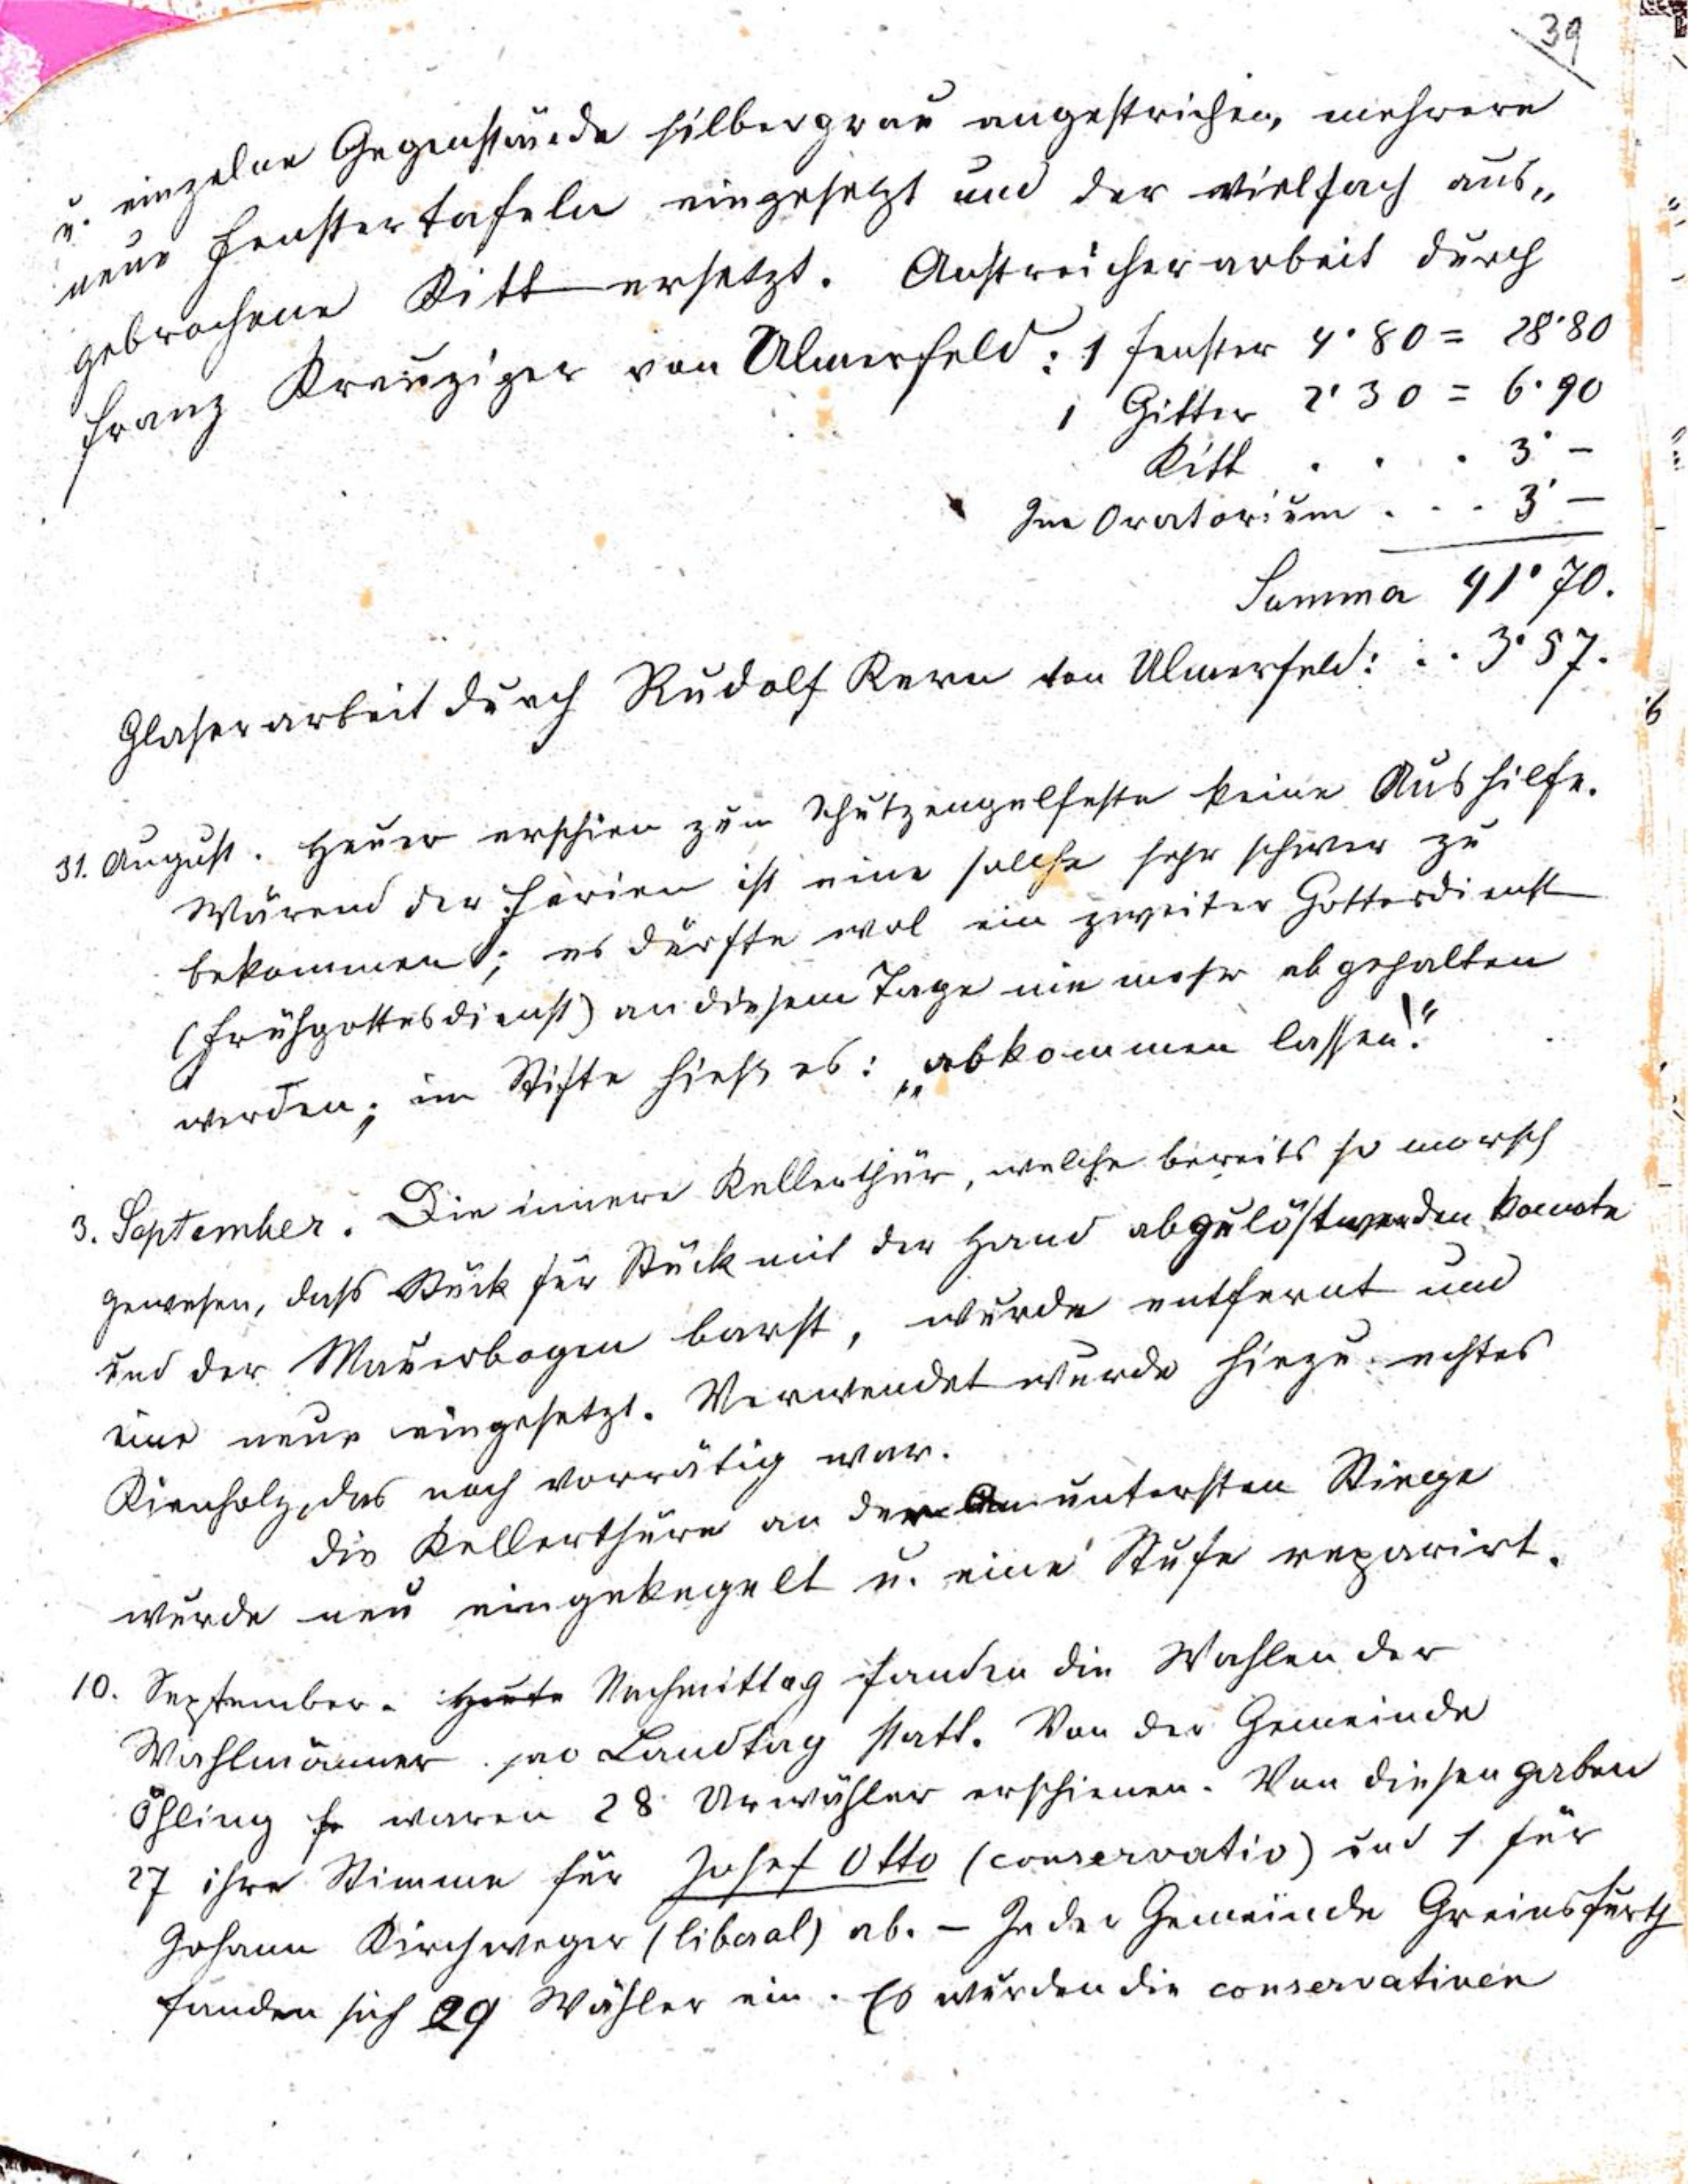 39
u. einzelne Gegenstände silbergrau angestrichen, mehrere
neue Fenstertafeln eingesetzt und der vielfach aus„
gebrochene Kitt ersetzt. Anstreicherarbeit durch
Franz Kreuziger von Ulmerfeld: 1 Fenster 4·80 = 28·80
1 Gitter 2·30 = 6·90
Kitt . . . 3·–
Im Oratorium . . . 3·–
Summa 41·70.
Glaserarbeit durch Rudolf Kern von Ulmerfeld: . . 3·57.
31. August. Heuer erschien zum Schutzengelfeste keine Aushilfe.
Wärend der Ferien ist eine solche sehr schwer zu
bekommen; es dürfte wol ein zweiter Gottesdienst
(Frühgottesdienst) an diesem Tage nie mehr abgehalten
werden; im Stifte hieß es: „abkommen lassen!“
3. September. Die innere Kellerthür, welche bereits so morsch
gewesen, dass Stück für Stück mit der Hand abgelöst werden konnte
und der Mauerbogen barst, wurde entfernt und
eine neue eingesetzt. Verwendet wurde hiezu echtes
Kienholz, das noch vorrätig war.
Die Kellerthüre an der untersten Stiege
wurde neu eingekegelt u. eine Stufe reparirt.
10. September. Heute Nachmittag fanden die Wahlen der
Wahlmänner pro Landtag statt. Von der Gemeinde
Öhling waren 28 Urwähler erschienen. Von diesen gaben
27 ihre Stimme für Josef Otto (conservativ) und 1 für
Johann Kirchweger (liberal) ab. – In der Gemeinde Greinsfurth
fanden sich 29 Wähler ein. Es wurden die conservativen